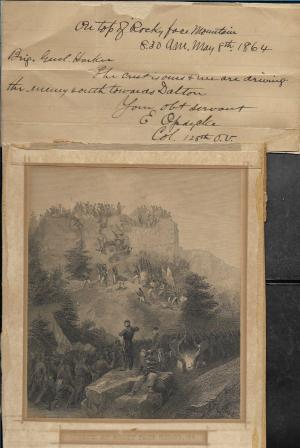 On top of Rocky face Mountain
8.30 A.M. May 8th 1864
Brig. Genl Harker
The crest is ours & we are driving
the enemy south towards Dalton
Your obt servant
E Opdycke
Col. 125th O.V.